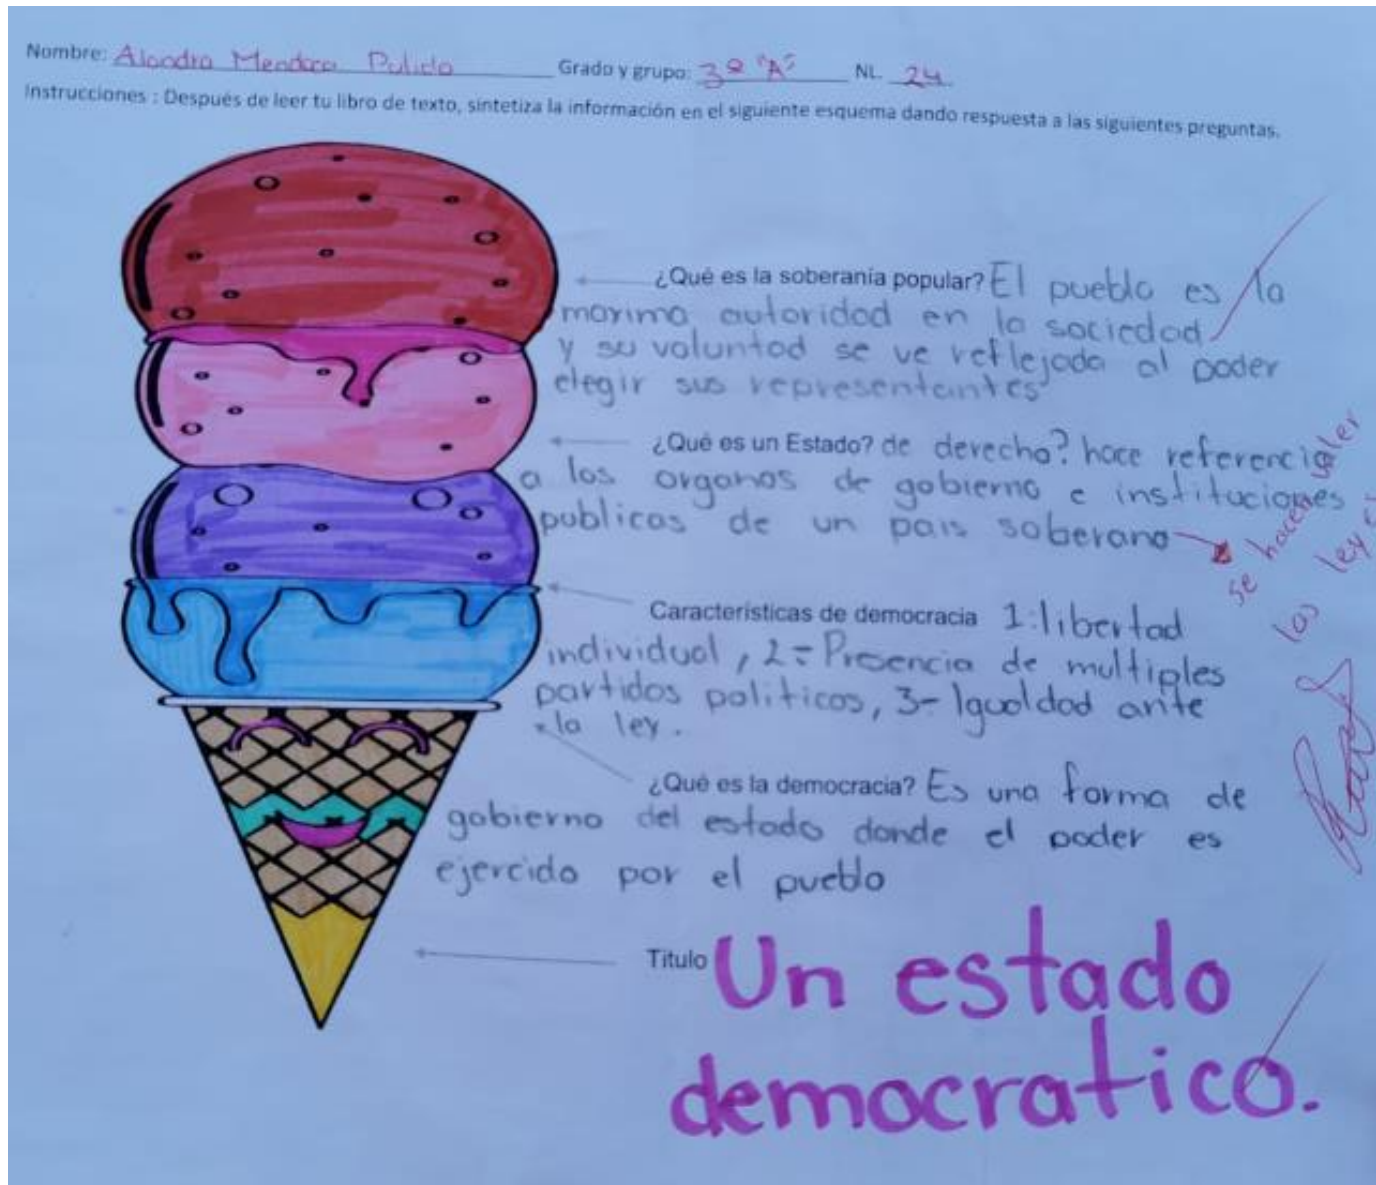 Nombre: Alondra Mendoza Pulido Grado y grupo: 3º "A" NL. 24
Instrucciones : Después de leer tu libro de texto, sintetiza la información en el siguiente esquema dando respuesta a las siguientes preguntas.
¿Qué es la soberanía popular? El pueblo es la
maxima autoridad en la sociedad
y su voluntad se ve reflejada al poder
elegir sus representantes
¿Qué es un Estado? de derecho? hace referencia
a los organos de gobierno e instituciones
publicas de un pais soberano
se hacen valer
las leyes
Características de democracia 1:libertad
individual, 2- Presencia de multiples
partidos politicos, 3- Igualdad ante
la ley.
¿Qué es la democracia? Es una forma de
gobierno del estado donde el poder es
ejercido por el pueblo
Titulo Un estado
democratico.